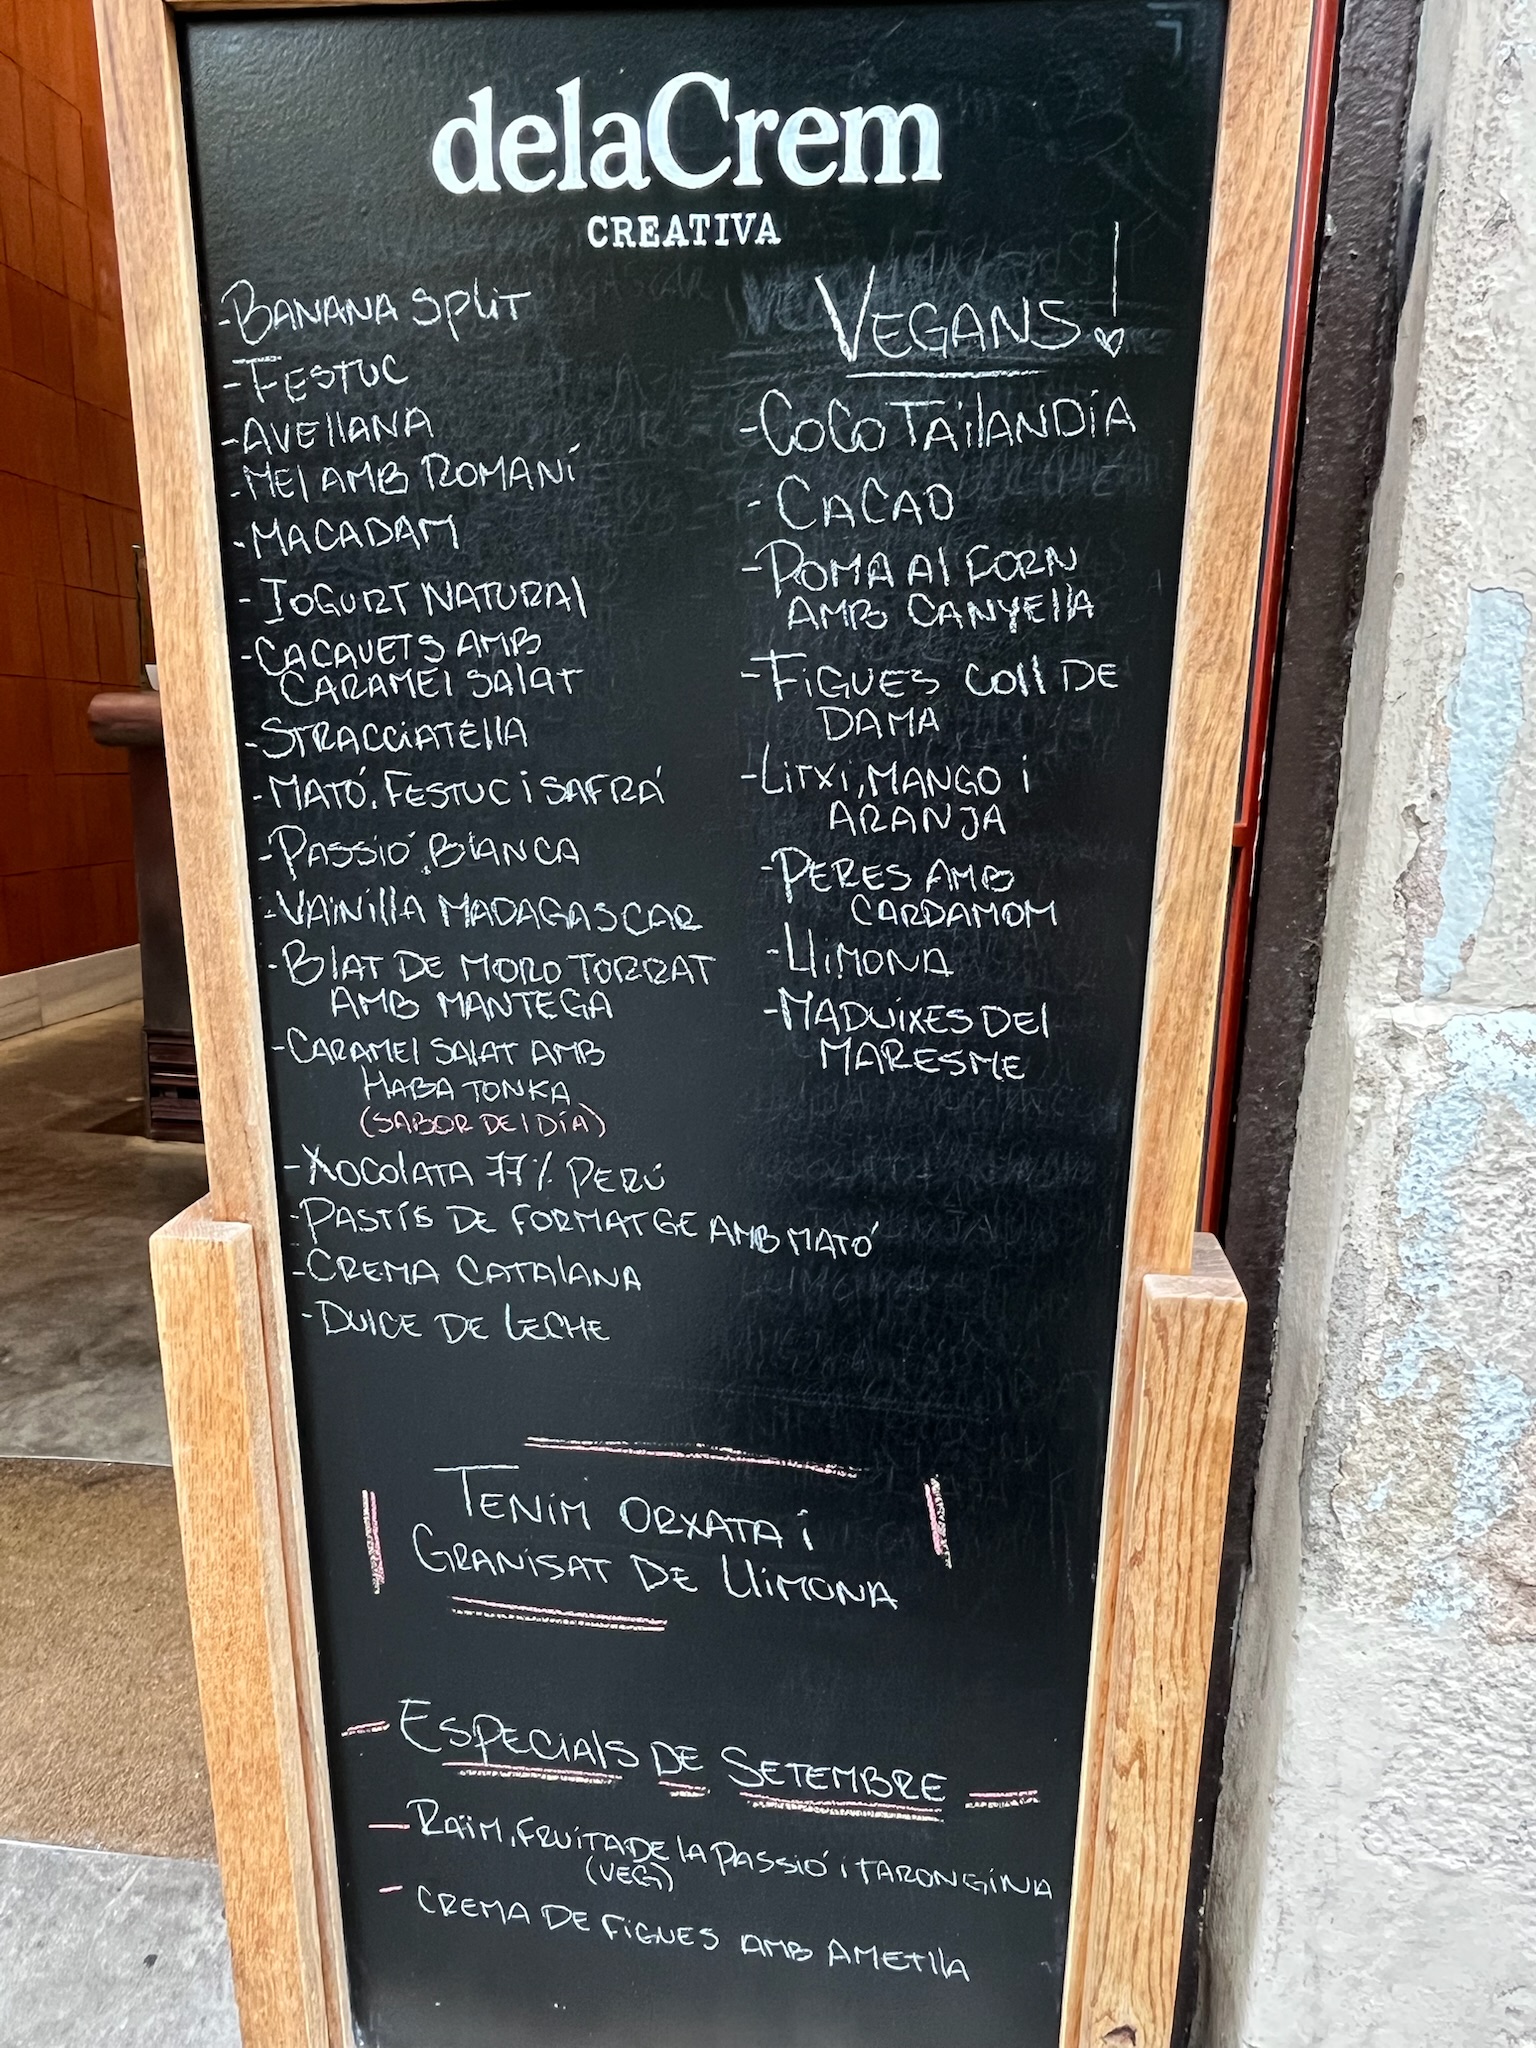 delaCrem
CREATIVA
-BANANA SPLIT
-FESTUC
-AVELLANA
-MEL AMB ROMANÍ
-MACADAM
-IOGURT NATURAL
-CACAUETS AMB
CARAMEL SALAT
-STRACCIATELLA
-MATÓ, FESTUC I SAFRÁ
-PASSIÓ BLANCA
-VAINILLA MADAGASCAR
-BLAT DE MORO TORRAT
AMB MANTEGA
-CARAMEL SALAT AMB
HABA TONKA
(SABOR DEL DÍA)
-XOCOLATA 77% PERÚ
-PASTÍS DE FORMATGE AMB MATÓ
-CREMA CATALANA
-DULCE DE LECHE
VEGANS!
-COCO TAILANDIA
-CACAO
-POMA AL FORN
AMB CANYELLA
-FIGUES COLL DE
DAMA
-LITXI, MANGO I
ARANJA
-PERES AMB
CARDAMOM
-LLIMONA
-MADUIXES DEL
MARESME
TENIM ORXATA I
GRANISAT DE LLIMONA
-ESPECIALS DE SETEMBRE-
-RAÏM, FRUITA DE LA PASSIÓ I TARONGINA
(VEG)
-CREMA DE FIGUES AMB AMETLLA